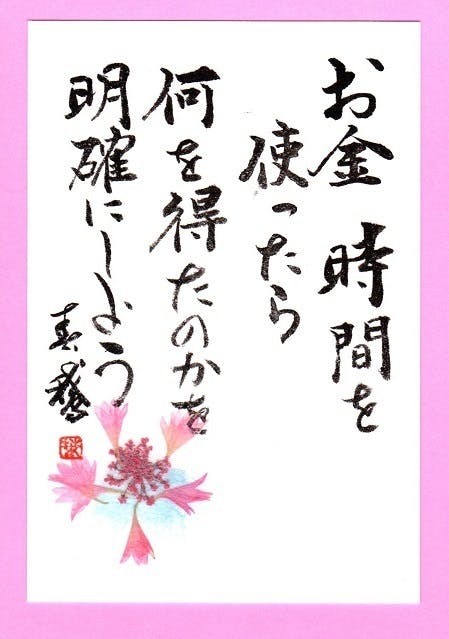 お金 時間を
使ったら
何を得たのかを
明確にしよう